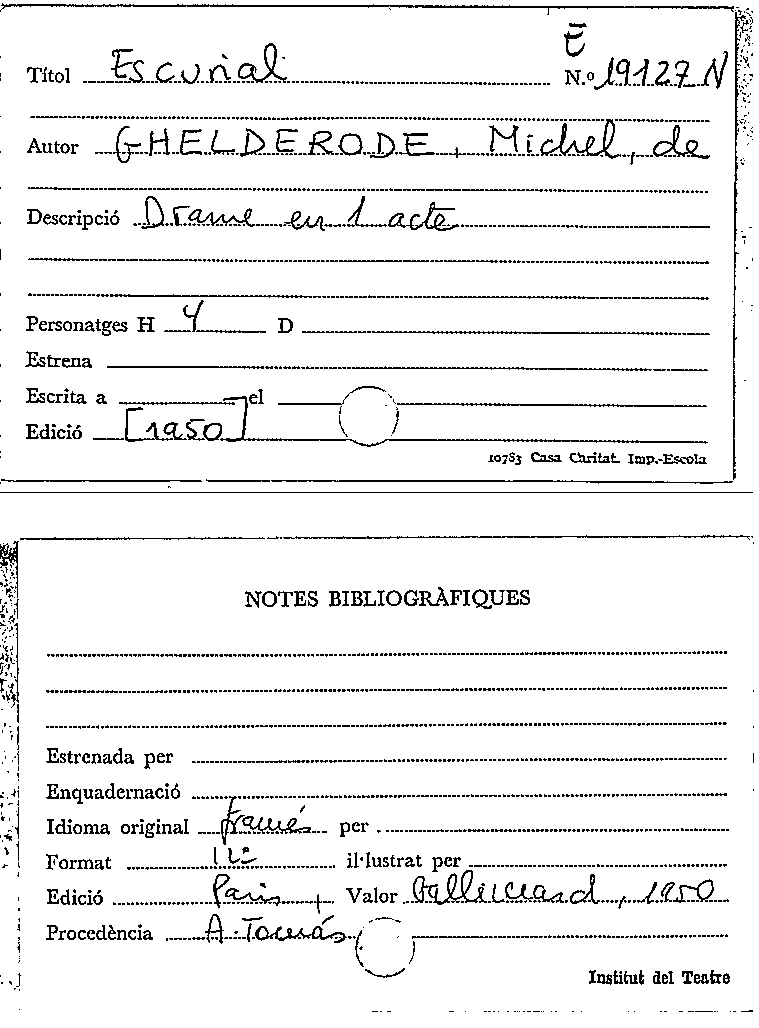 E
Títol Escurial N.º 19127 N
Autor GHELDERODE, Michel, de
Descripció Drame en 1 acte
Personatges H 4 D
Estrena
Escrita a el
Edició [1950]
10783 Casa Caritat. Imp.-Escola
NOTES BIBLIOGRÀFIQUES
Estrenada per
Enquadernació
Idioma original francés per
Format il·lustrat per
Edició Paris, Valor Gallimard, 1950
Procedència A. Tomás
Institut del Teatre